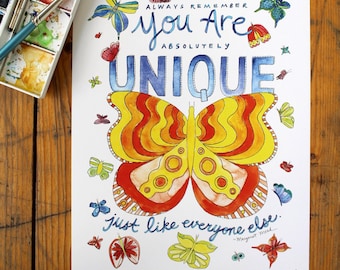 ALWAYS REMEMBER
You Are
ABSOLUTELY
UNIQUE
Just like everyone else.
~Margaret Mead